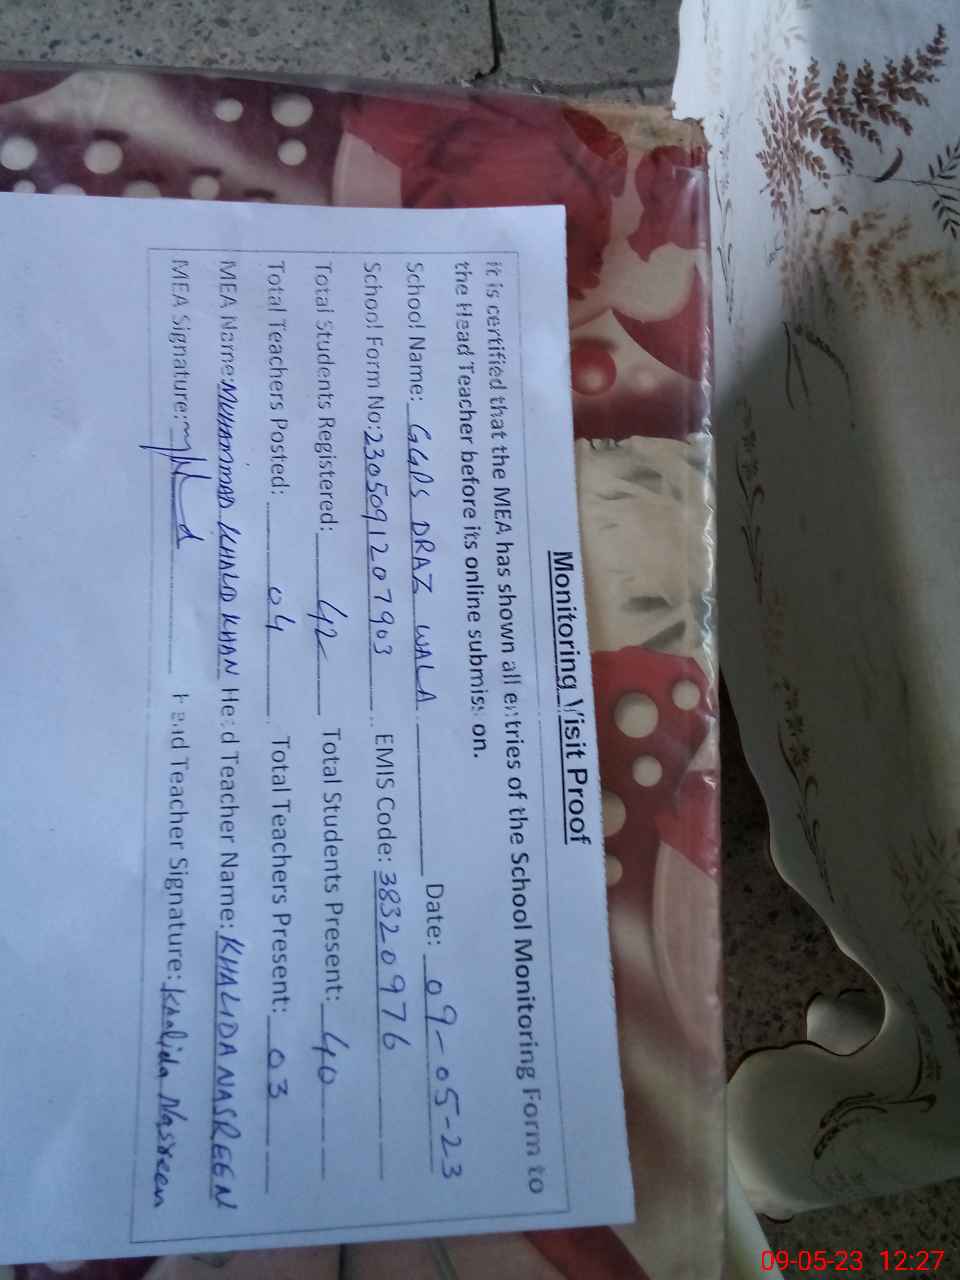 Monitoring Visit Proof
it is certified that the MEA has shown all entries of the School Monitoring Form to
the Head Teacher before its online submission.
School Name: GGPS DRAZ WALA Date: 09-05-23
School Form No: 2305091207903 EMIS Code: 38320976
Total Students Registered: 42 Total Students Present: 40
Total Teachers Posted: 04 Total Teachers Present: 03
MEA Name: MUHAMMAD KHALID KHAN Head Teacher Name: KHALIDA NASREEN
MEA Signature: Head Teacher Signature: Khalida Nasreen
09-05-23 12:27